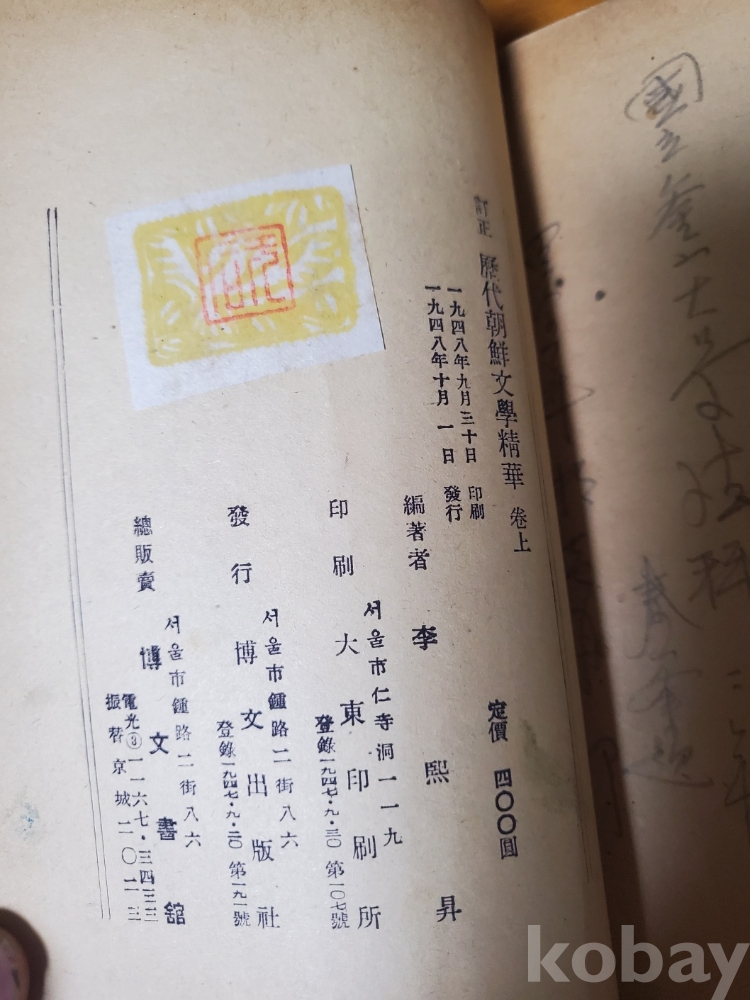 訂正 歷代朝鮮文學精華 卷上
一九四八年九月三十日 印刷
一九四八年十月 一日 發行
定價 四〇〇圓
編著者 李熙昇
서울市仁寺洞一一九
印刷 大東印刷所
登錄一九四七·九·三〇 第一〇七號
서울市鍾路二街八六
發行 博文出版社
登錄一九四七·九·二〇 第一九一號
서울市鍾路二街八六
總販賣 博文書舘
電光③一一六七·三四三三
振替京城二〇二三
國立釜山大學
kobay